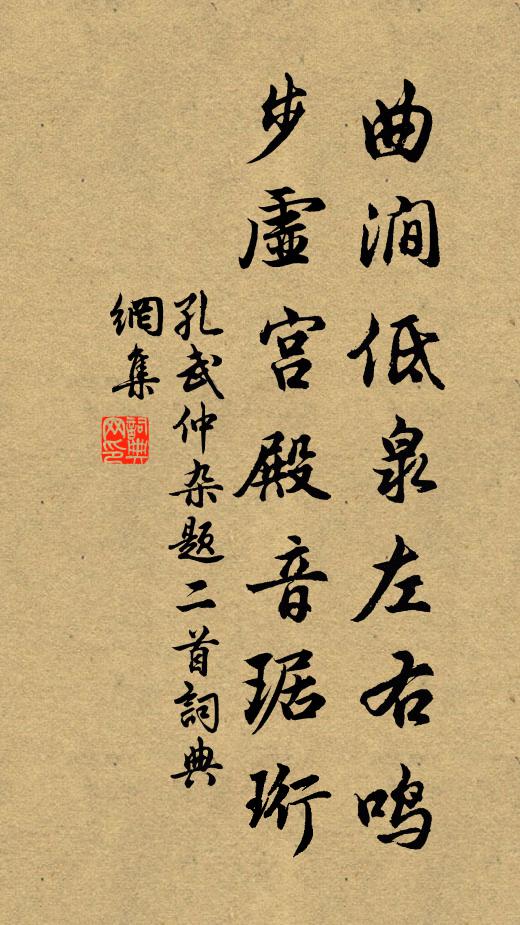 曲涧低泉左右鸣
步虚宫殿音琚珩
孔武仲杂题二首詞典
網集
詞典
网印